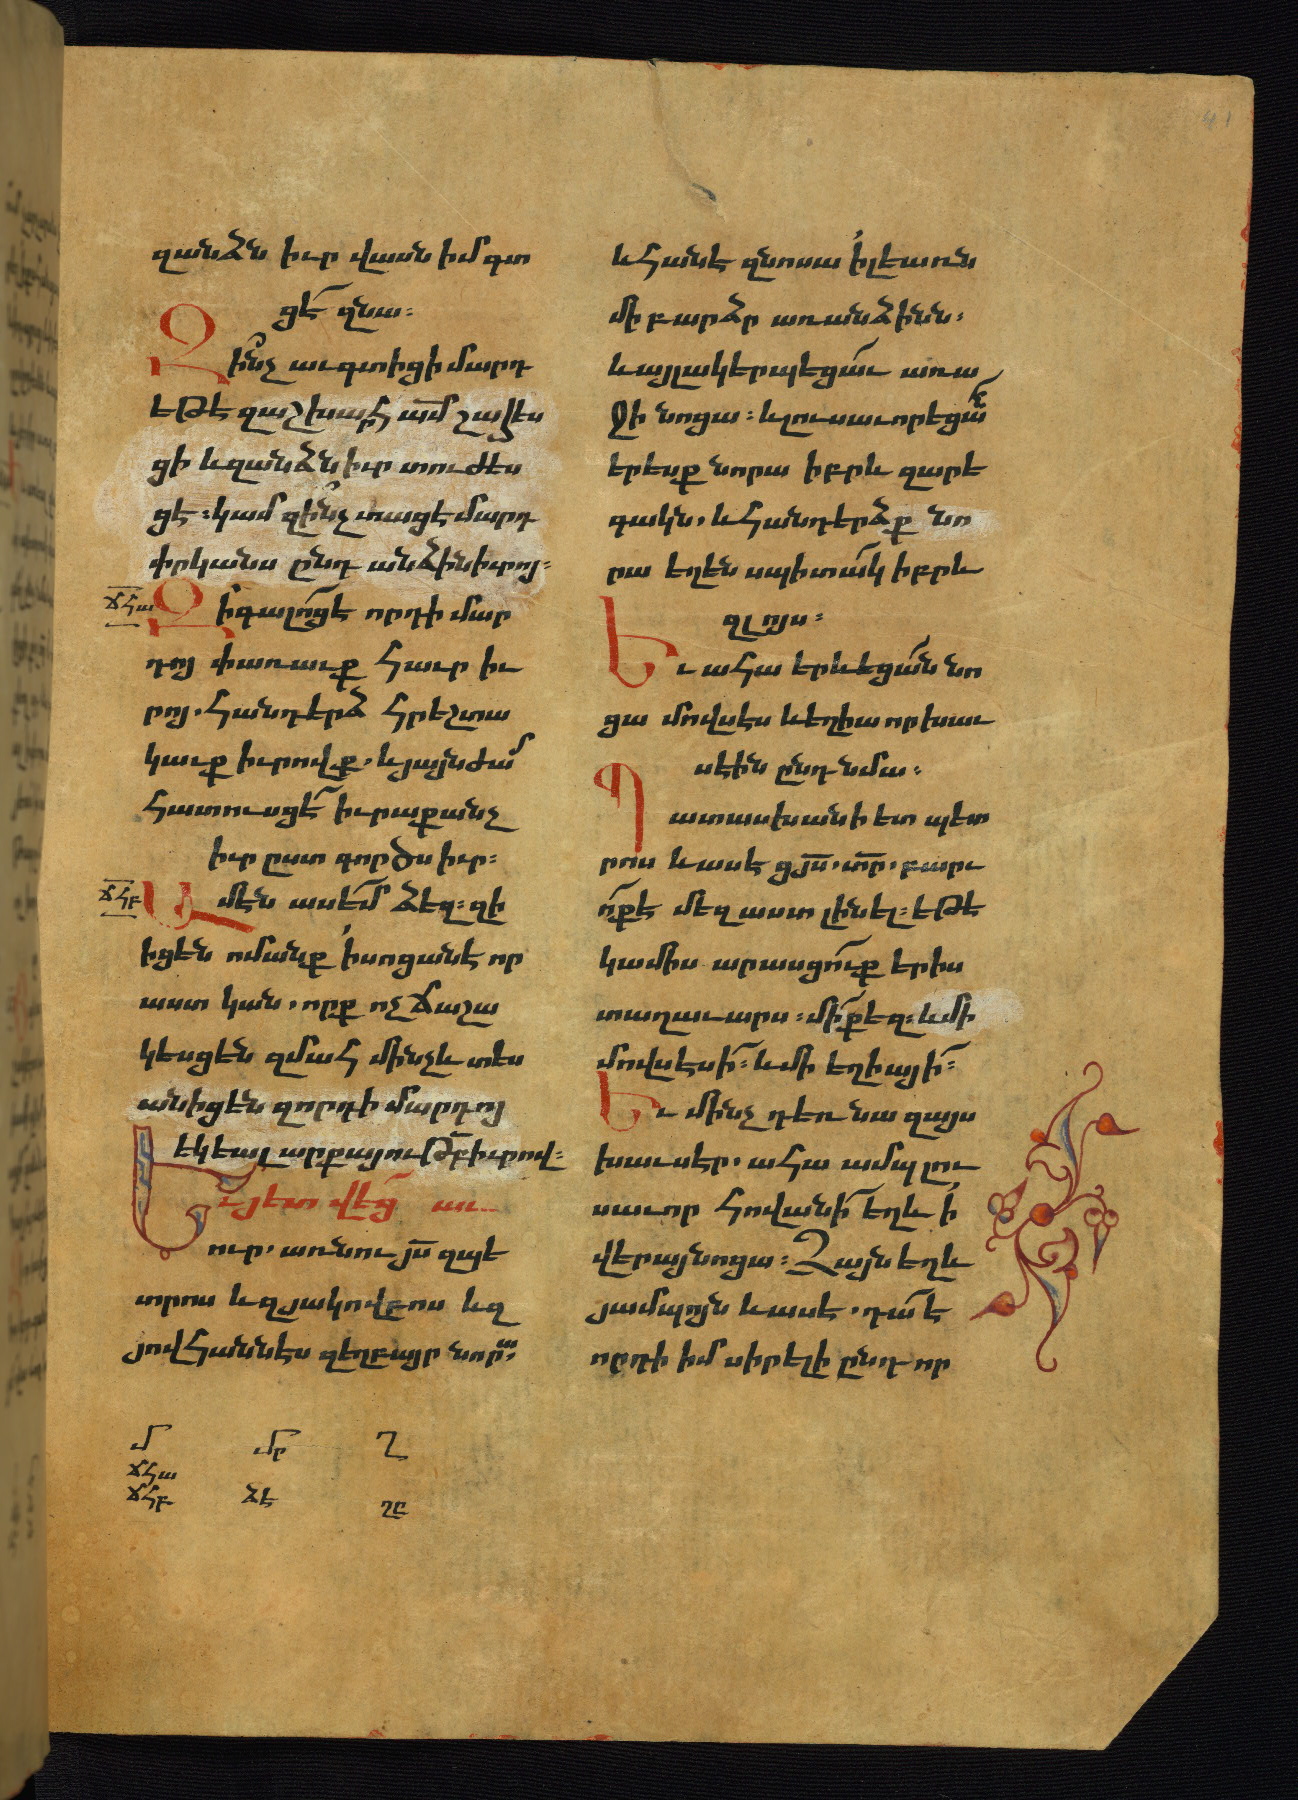 զանձն իւր վասն իմ գտ
ցէ զնա։
Զինչ աւգտիցի մարդ
եթէ զաշխարհ ամ շահես
ցի և զանձն իւր տուժես
ցէ։ կամ զինչ տացէ մարդ
փրկանս ընդ անձին իւրոյ։
ՃՀա
Զի գալոց է որդի մար
դոյ փառաւք հաւր իւ
րոյ. հանդերձ հրեշտա
կաւք իւրովք. և յայնժամ
հատուսցէ իւրաքանչ
իւր ըստ գործս իւր։
ՃՀբ
Ամէն ասեմ ձեզ։ զի
իցեն ոմանք ի սոցանէ որ
աստ կան. որք ոչ ճաշա
կեսցեն զմահ մինչև տես
անիցեն զորդի մարդոյ
եկեալ արքայութբ իւրով։
Եւ յետ վեց աւ
ուր. առնու յս զպե
տրոս և զյակովբոս և զ
յովհաննես զեղբայր նորա։
և հանէ զնոսա ի լեառն
մի բարձր առանձինն։
և այլակերպեցաւ առա
ջի նոցա։ և լուսաւորեցան
երեսք նորա իբրև զարե
գակն. և հանդերձք նո
րա եղեն սպիտակ իբրև
զլոյս։
Եւ ահա երևեցան նո
ցա մովսես և եղիա որ խաւ
սեին ընդ նմա։
Պատասխանի ետ պետ
րոս և ասէ ցյս. տր. բարւ
ոք է մեզ աստ լինել։ եթէ
կամիս արասցուք երիս
տաղաւարս։ մի քեզ։ և մի
մովսեսի։ և մի եղիայի։
Եւ մինչ դեռ նա զայս
խաւսէր. ահա ամպ լու
սաւոր հովանի եղև ի
վերայ նոցա։ Ձայն եղև
յամպոյն և ասէ. դա է
որդի իմ սիրելի ընդ որ
մ մը Ղ
ՃՀա
ՃՀբ ՁԷ ղը